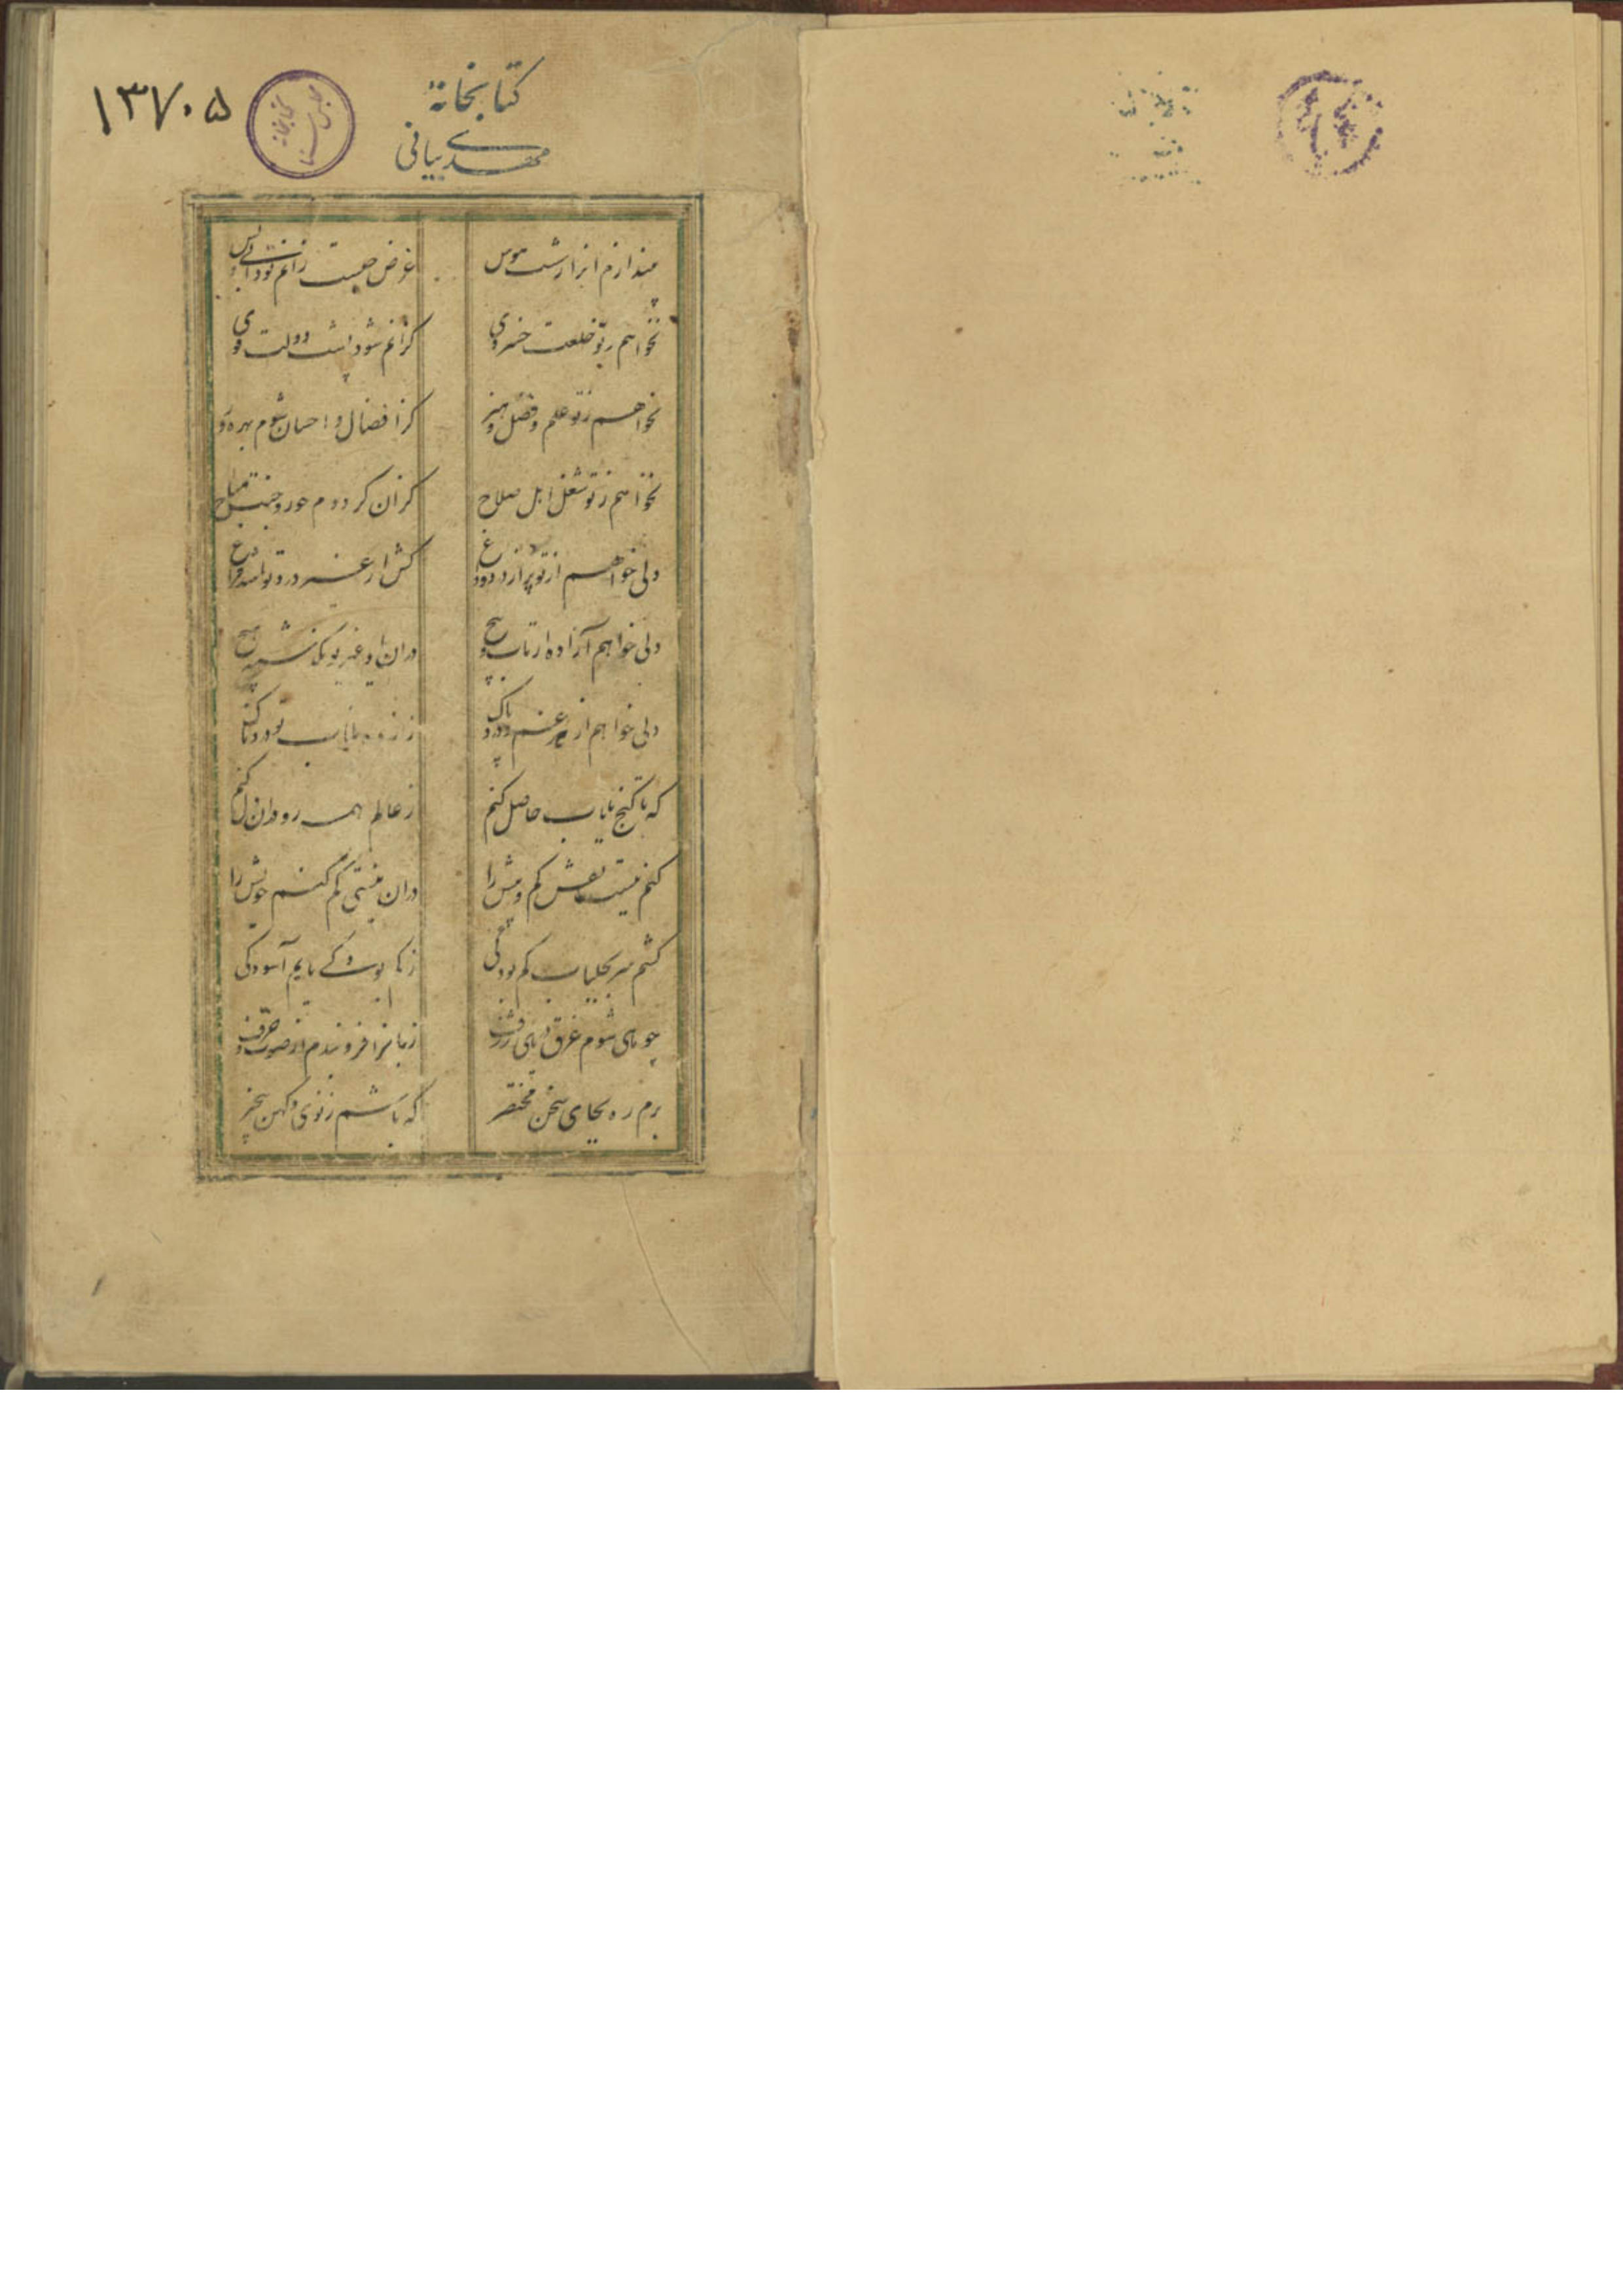 کتابخانهٔ
مهدی بیانی
۱۳۷۰۵
کتابخانه
غرض چیست زانم تو دانی و بس
نخواهم ز تو خلعت خسروی
کزانم شود پشت دولت قوی
نخواهم ز تو علم و فضل و هنر
کز افضال و احسان شوم بهره ور
نخواهم ز تو شغل اهل صلاح
کزان گرددم حور و جنت مباح
دلی خواهم از تو پر از درد و داغ
کش از غیر درد تو باشد فراغ
دلی خواهم آزاده از تاب و پیچ
دران یاد غیر تو نگذشته هیچ
دلی خواهم از هر غم و درد پاک
ز اندوه نایاب تو دردناک
که تا گنج نایاب حاصل کنم
ز عالم همه رو دران دل کنم
کنم نیست نقش کم و بیش را
دران نیستی گم کنم خویش را
کشم سر بجلباب کم بودگی
ز نابودگی یابم آسودگی
چو ماهی شوم غرق دریای ژرف
زبانرا فروبندم از صوت و حرف
برم ره بجای سخن مختصر
که باشم ز نوی و کهن بیخبر